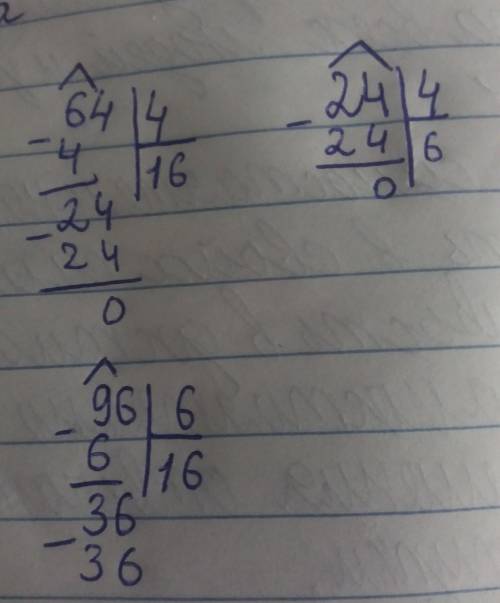 64 4
- 4 16
- 24
24
0
24 4
- 24 6
0
- 96 6
6 16
- 36
36